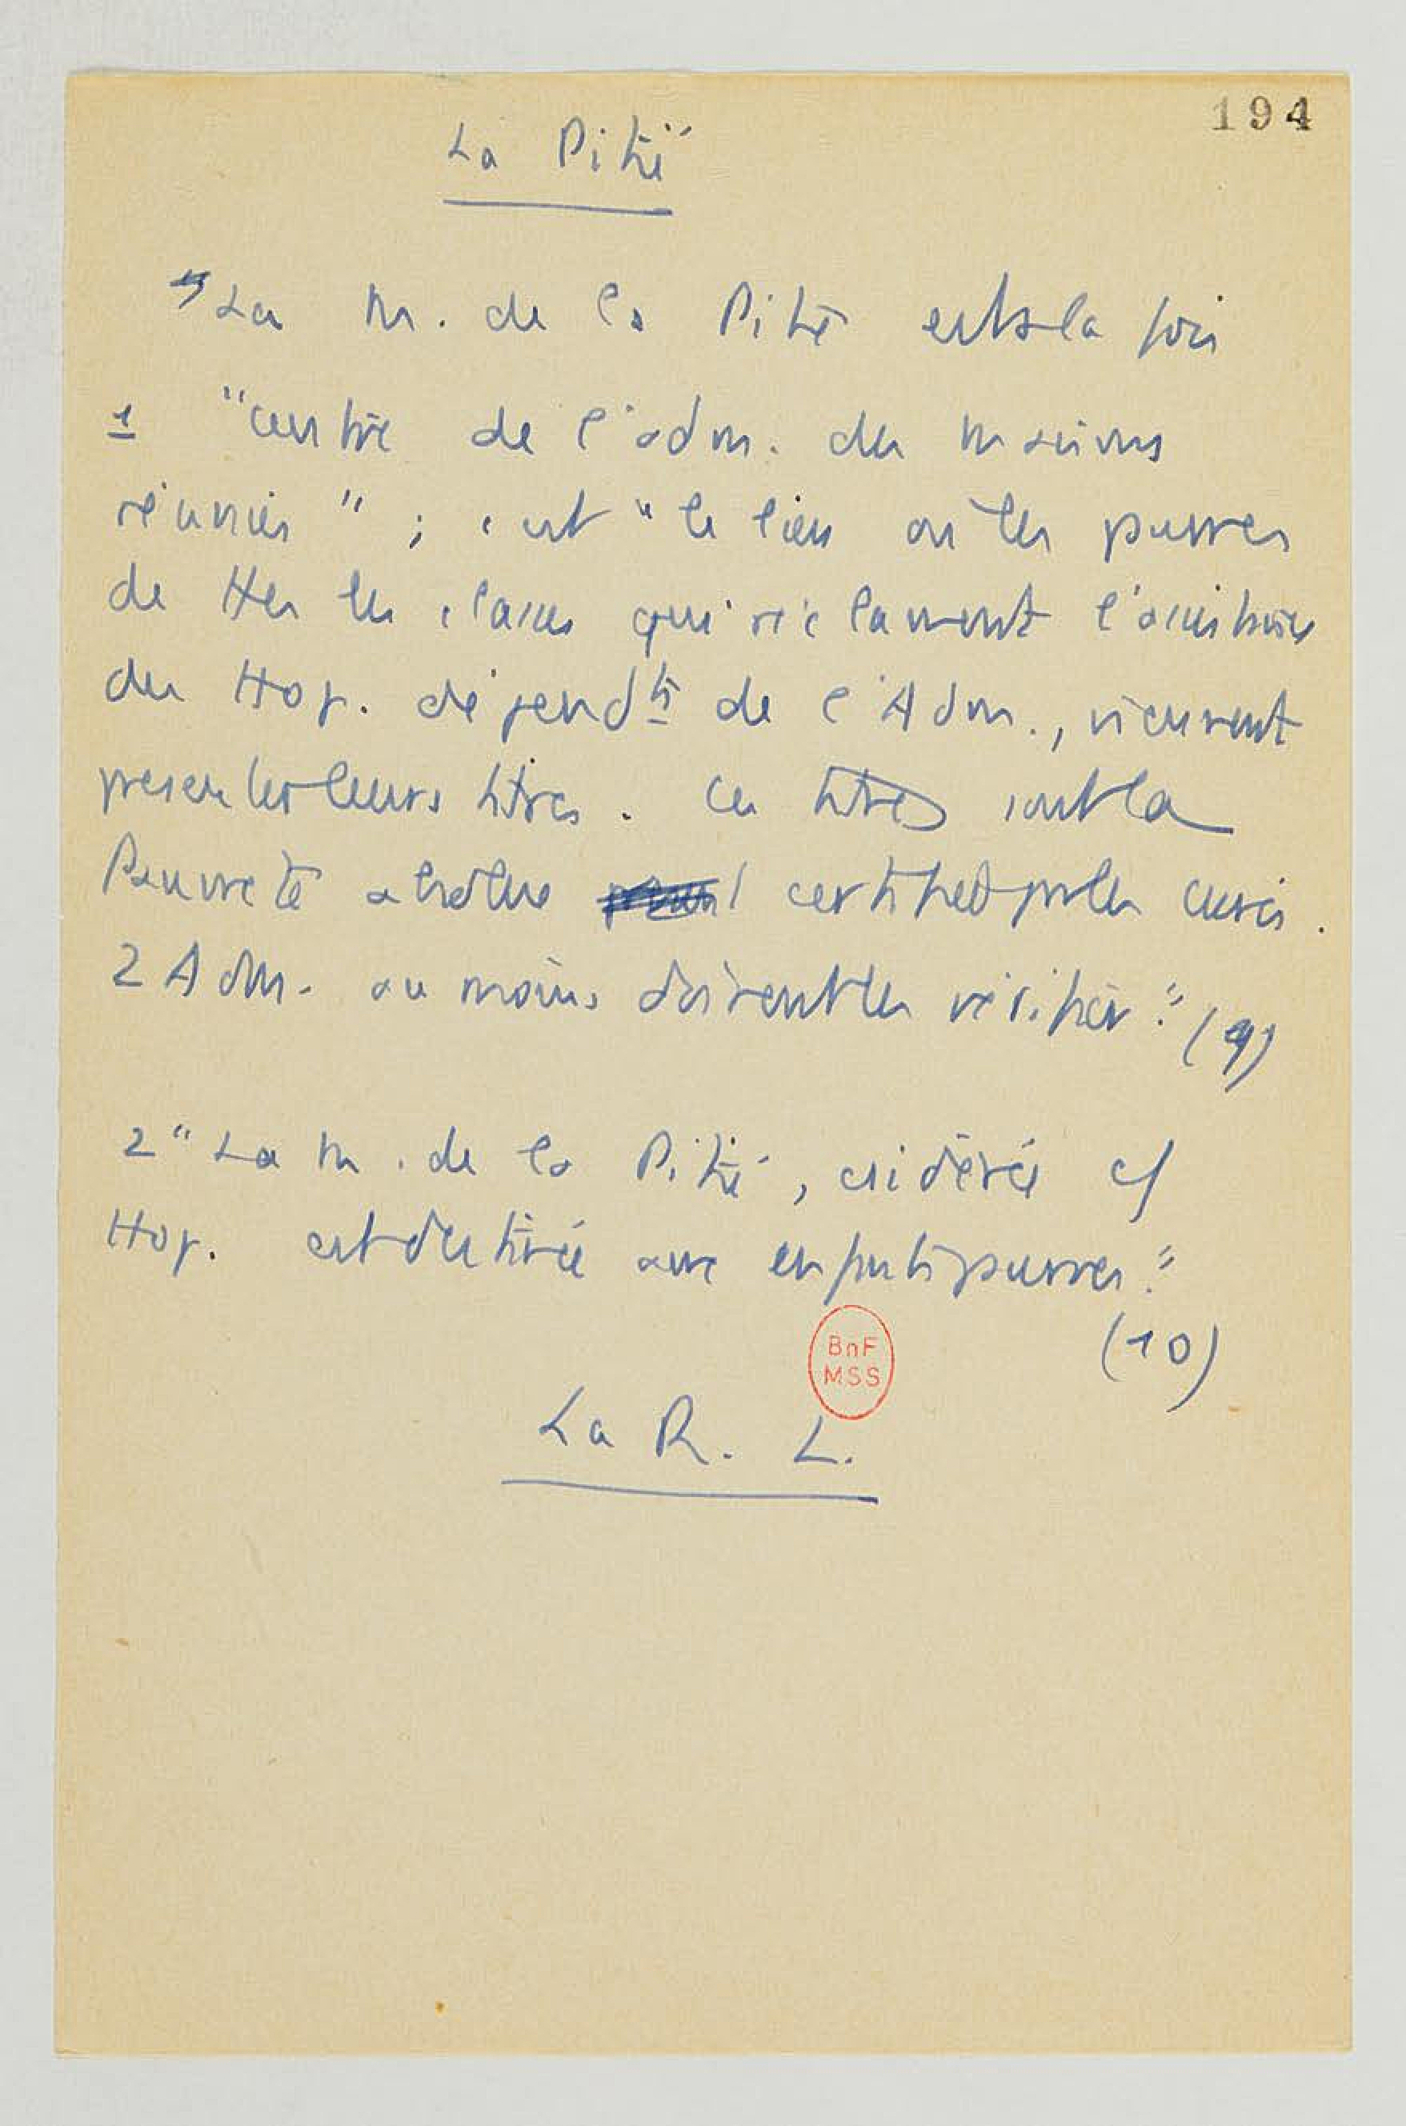 194
La Pitié
La M. de la Pitié est à la fois
1 "centre de l'adm. des maisons
réunies" ; c'est "le lieu où les pauvres
de ttes les classes qui réclament l'assistance
des Hop. dépendts de l'Adm., viennent
presenter leurs titres. Ces titres sont la
Pauvreté absolue certifiée par les curés.
2 Adm. au moins doivent les vérifier." (9)
2 "La M. de la Pitié, csidérée c/
Hop. est destinée aux enfants pauvres."
(10)
BnF
MSS
La R. L.